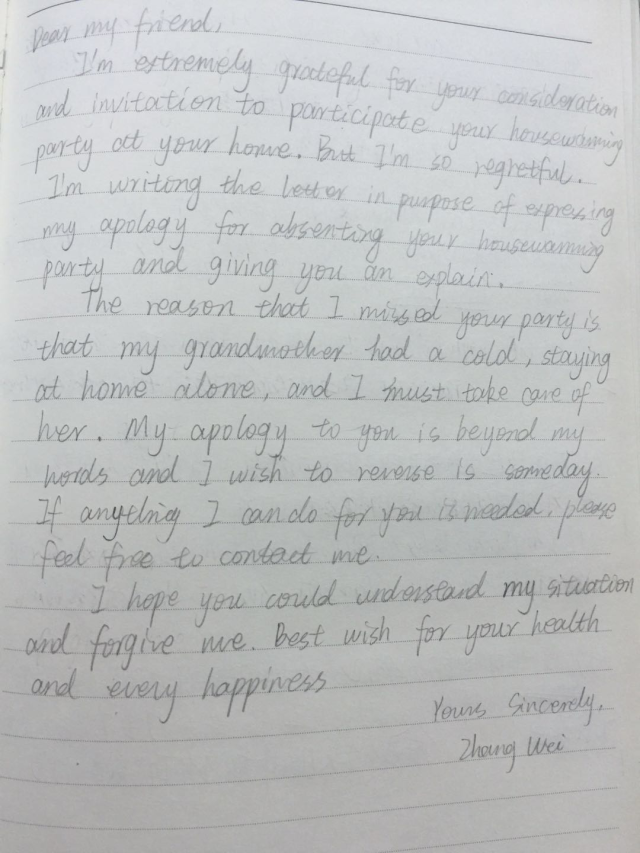 Dear my friend,
I'm extremely grateful for your consideration
and invitation to participate your housewarming
party at your home. But I'm so regretful.
I'm writing the letter in purpose of expressing
my apology for absenting your housewarming
party and giving you an explain.
The reason that I missed your party is
that my grandmother had a cold, staying
at home alone, and I must take care of
her. My apology to you is beyond my
words and I wish to reverse is someday.
If anything I can do for you is needed, please
feel free to contact me.
I hope you could understand my situation
and forgive me. Best wish for your health
and every happiness
Yours Sincerely,
Zhang Wei